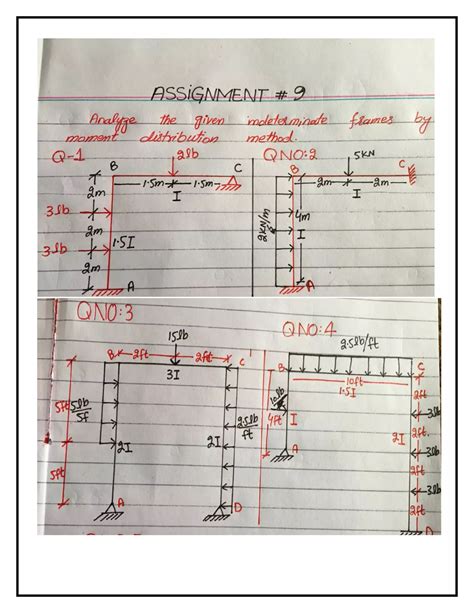 ASSIGNMENT # 9
Analyze the given indeterminate frames by
moment distribution method.
Q-1
2lb
B
C
1.5m
1.5m
I
2m
3lb
2m
3lb
1.5I
2m
A
QNO:2
5KN
B
C
2m
2m
I
4m
2KN/m
I
A
QNO:3
15lb
B
2ft
2ft
C
3I
5ft
5lb
2I
2I
2.5lb
ft
5ft
A
D
QNO:4
2.5lb/ft
B
C
10ft
1.5I
10lb
4ft
I
A
2I
2ft
3lb
2ft
3lb
2ft
3lb
2ft
D